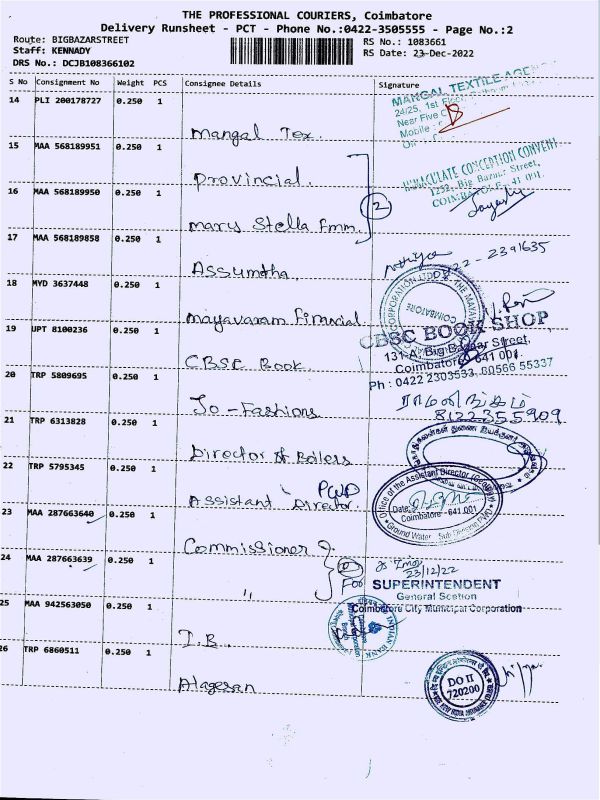 THE PROFESSIONAL COURIERS, Coimbatore
Delivery Runsheet - PCT - Phone No.:0422-3505555 - Page No.:2
Route: BIGBAZARSTREET
Staff: KENNADY
DRS No.: DCJB108366102
RS No.: 1083661
RS Date: 23-Dec-2022
S No Consignment No Weight PCS Consignee Details Signature
14 PLI 200178727 0.250 1
Mangal Tex.
MANGAL TEXTILE AGENCY
24/25, 1st
Near Five C
Mobile
15 MAA 568189951 0.250 1
Provincial.
IMMACULATE CONCEPTION CONVENT
1232, Big Bazaar Street,
COIMBATORE - 641 001.
16 MAA 568189950 0.250 1
2
mary Stella Fmm.
17 MAA 568189858 0.250 1
Assumtha
- 2391635
18 MYD 3637448 0.250 1
Mayavaram Financial
COIMBATORE
19 UPT 8100236 0.250 1
CBSE Book.
CBSC BOOK SHOP
131-A, Big Bazaar Street,
Coimbatore - 641 001.
Ph : 0422 2303533, 80566 55337
20 TRP 5809695 0.250 1
Jo-Fashions
ராமலிங்கம்
8122355909
21 TRP 6313828 0.250 1
Director of Boilers
22 TRP 5795345 0.250 1
PWD
Assistant Director.
Office of the Assistant Director (Geology)
Date:
Coimbatore - 641 001
Ground Water Sub Division PWD
23 MAA 287663640 0.250 1
Commissioner
24 MAA 287663639 0.250 1
"
23/12/22
SUPERINTENDENT
General Section
Coimbatore City Municipal Corporation
25 MAA 942563050 0.250 1
I.B.
INDIAN BANK
26 TRP 6860511 0.250 1
Alagesan
DO II
720200